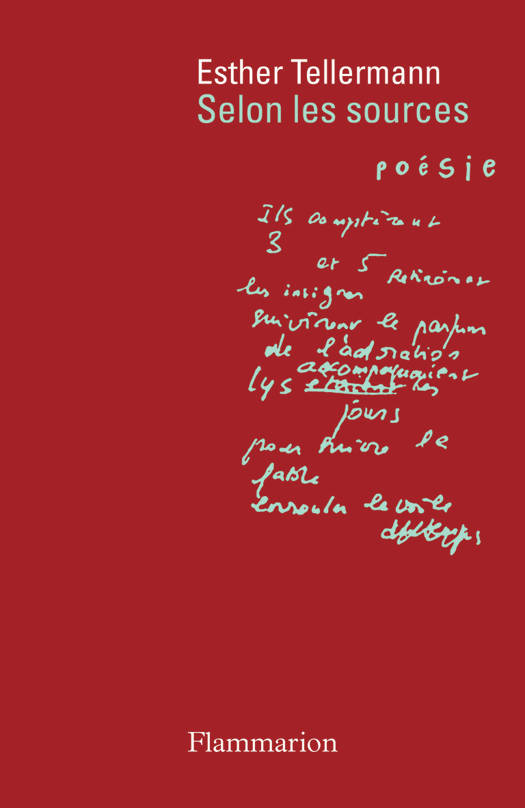 Esther Tellermann
Selon les sources
poésie
Ils comptèrent
3
et 5 Retirèrent
les insignes
suivirent le parfum
de l'adoration
accompagnaient
lys étaient les
jours
pour suivre le
sable
le voile